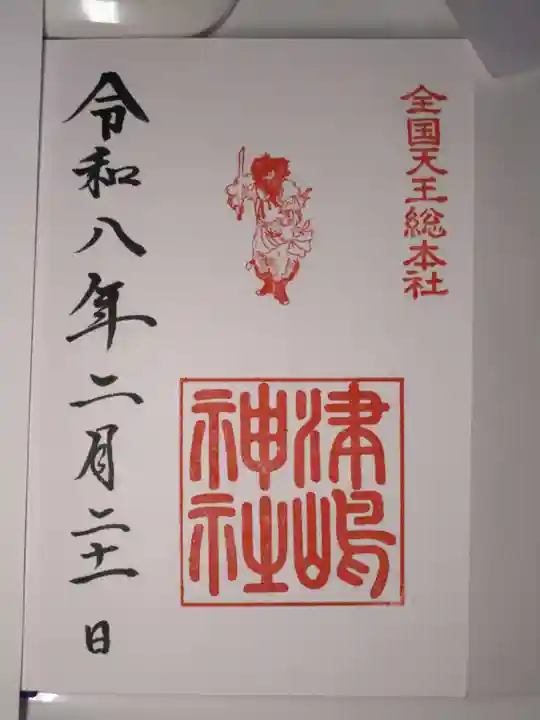 全国天王総本社
津嶋
神社
令和八年二月二十一日